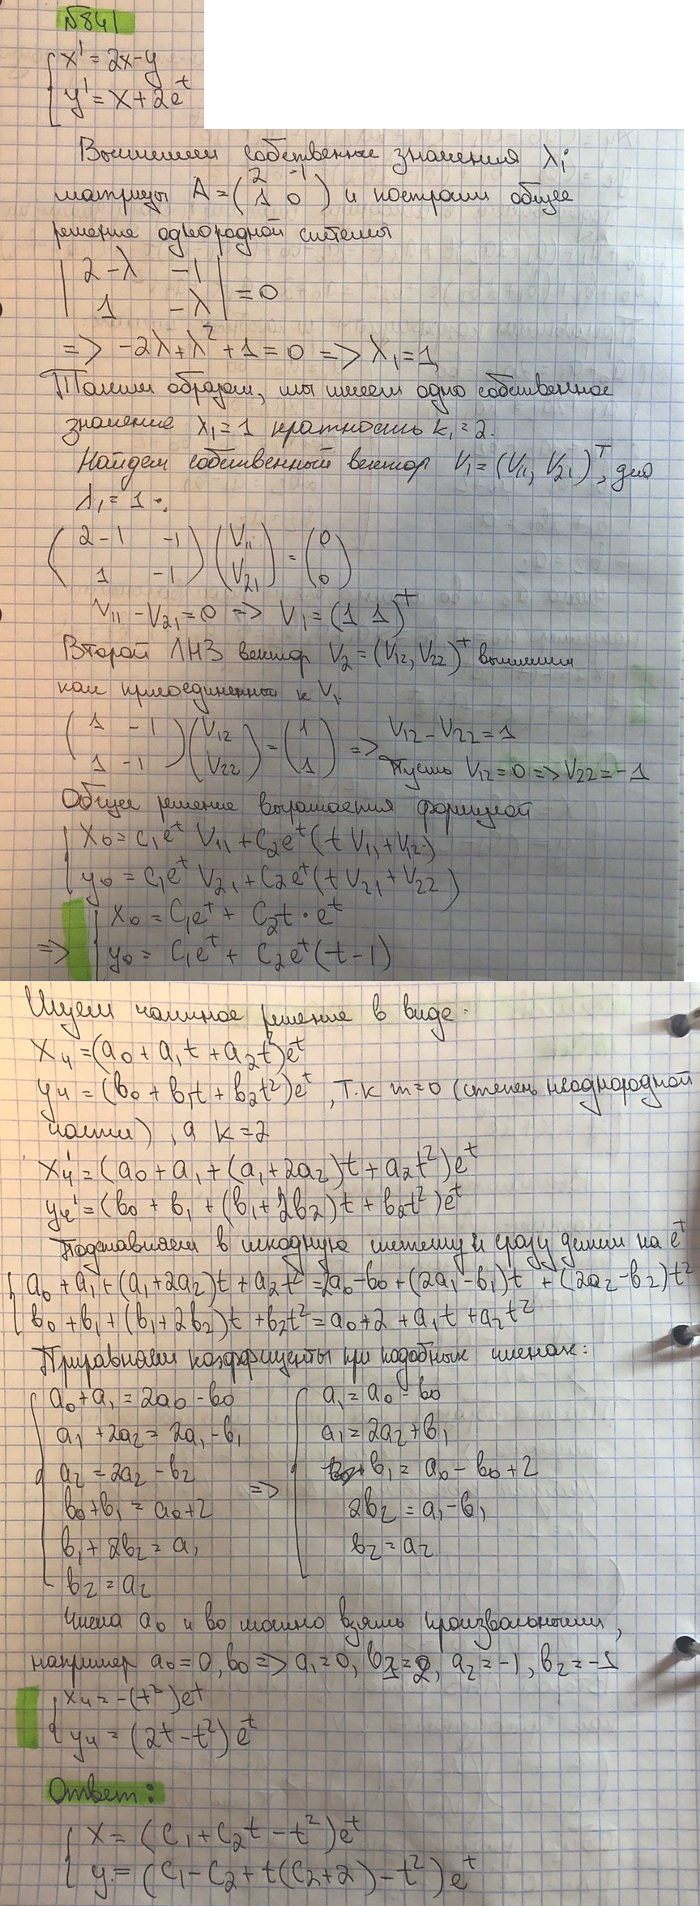 №841
x' = 2x-y
y' = x+2e^t
Вычислим собственные значения λi
матрицы A = (2 -1 1 0) и построим общее
решение однородной системы
|2-λ -1|
|1 -λ| = 0
=> -2λ+λ²+1=0 => λ₁=1
Таким образом, мы имеем одно собственное
значение λ₁=1 кратность k₁=2.
Найдем собственный вектор V₁=(V₁₁, V₂₁)^T, для
λ₁=1:
(2-1 -1) (V₁₁) = (0)
(1 -1) (V₂₁) (0)
V₁₁-V₂₁=0 => V₁=(1 1)^T
Второй ЛНЗ вектор V₂=(V₁₂, V₂₂)^T вычислим
как присоединенный к V₁.
(1 -1) (V₁₂) = (1) => V₁₂-V₂₂=1
(1 -1) (V₂₂) (1) Пусть V₁₂=0 => V₂₂=-1
Общее решение выражается формулой
x₀=C₁e^t V₁₁+C₂e^t(tV₁₁+V₁₂)
y₀=C₁e^t V₂₁+C₂e^t(tV₂₁+V₂₂)
=> x₀=C₁e^t+C₂t·e^t
y₀=C₁e^t+C₂e^t(t-1)
Ищем частное решение в виде.
xч=(a₀+a₁t+a₂t²)e^t
yч=(b₀+b₁t+b₂t²)e^t, т.к m=0 (степень неоднородной
части), а k=2
xч'=(a₀+a₁+(a₁+2a₂)t+a₂t²)e^t
yч'=(b₀+b₁+(b₁+2b₂)t+b₂t²)e^t
Подставляем в исходную систему и сразу делим на e^t
a₀+a₁+(a₁+2a₂)t+a₂t²=2a₀-b₀+(2a₁-b₁)t+(2a₂-b₂)t²
b₀+b₁+(b₁+2b₂)t+b₂t²=a₀+2+a₁t+a₂t²
Приравняем коэффициенты при подобных членах:
a₀+a₁=2a₀-b₀ a₁=a₀-b₀
a₁+2a₂=2a₁-b₁ a₁=2a₂+b₁
a₂=2a₂-b₂ => b₁=a₀-b₀+2
b₀+b₁=a₀+2 2b₂=a₁-b₁
b₁+2b₂=a₁ b₂=a₂
b₂=a₂
Числа a₀ и b₀ можно взять произвольными,
например a₀=0, b₀ => a₁=0, b₁=2, a₂=-1, b₂=-1
xч=-(t²)e^t
yч=(2t-t²)e^t
Ответ:
x=(C₁+C₂t-t²)e^t
y=(C₁-C₂+t(C₂+2)-t²)e^t